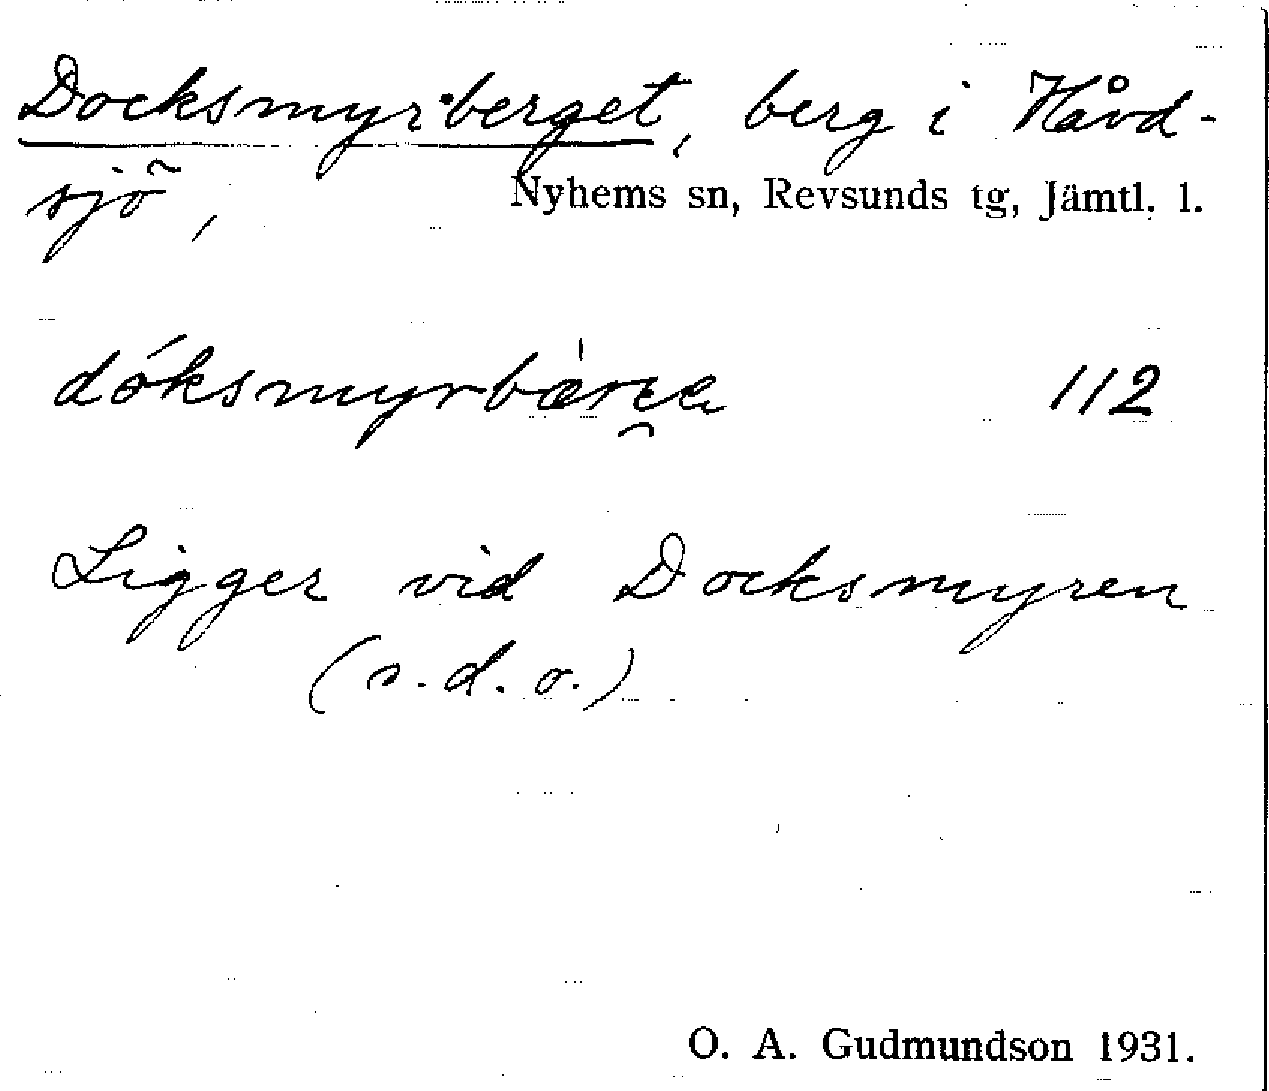 Docksmyrberget, berg i Håvd-
sjö,
Nyhems sn, Revsunds tg, Jämtl. l.
112
Ligger vid Docksmyren
(s.d.o.)
O. A. Gudmundson 1931.